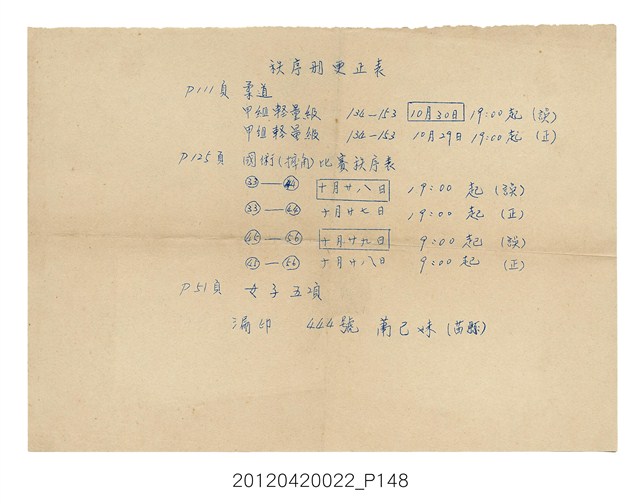 秩序册更正表
P111頁 柔道
甲組輕量級 134—153 10月30日 19:00起 (誤)
甲組輕量級 134—153 10月29日 19:00起 (正)
P125頁 國術(摔角)比賽秩序表
㉝—㊹ 十月廿八日 19:00 起 (誤)
㉝—㊹ 十月廿七日 19:00 起 (正)
㊺—56 十月廿九日 9:00 起 (誤)
㊺—56 十月廿八日 9:00 起 (正)
P51頁 女子五項
漏印 444號 蕭己妹 (苗縣)
20120420022_P148